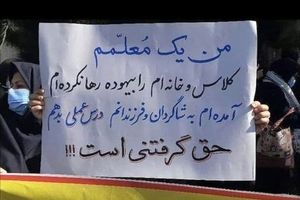 من یک مُعلّمم
کلاس و خانه‌ام را بیهوده رها نکرده‌ام
آمده‌ام به شاگردان و فرزندانم درس عملی بدهم
حق گرفتنی است !!!